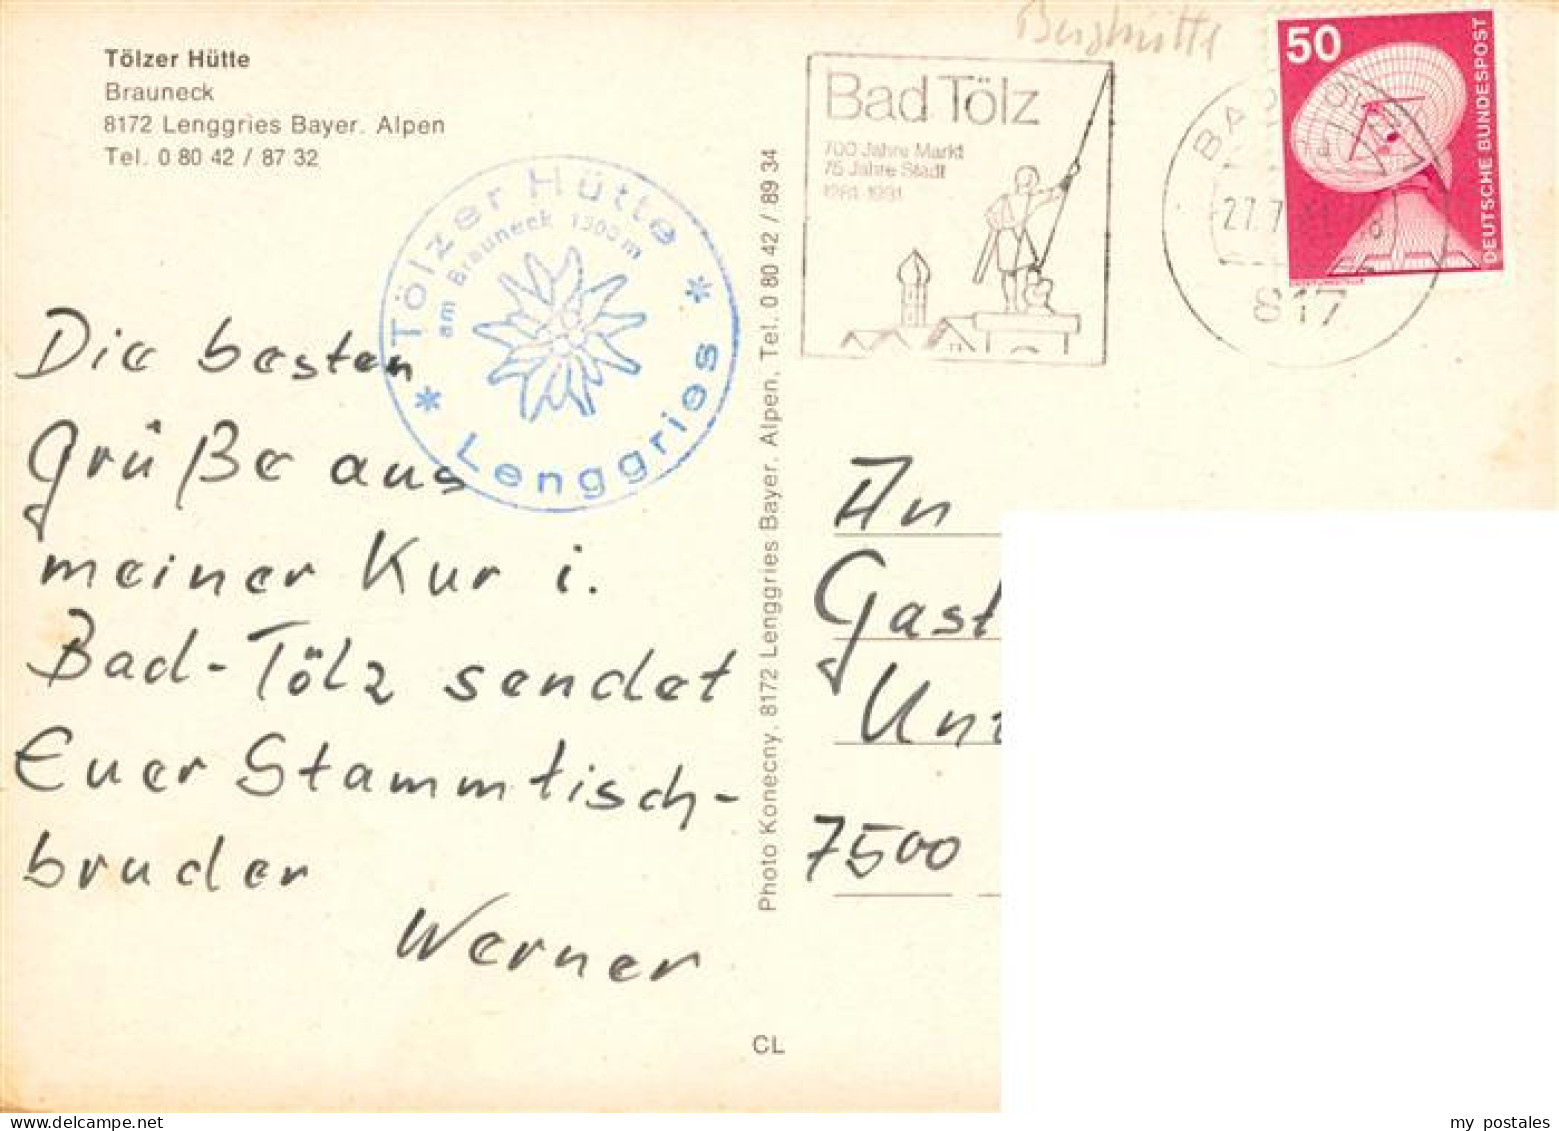 Tölzer Hütte
Brauneck
8172 Lenggries Bayer. Alpen
Tel. 0 80 42 / 87 32
Tölzer Hütte
am Brauneck
* Lenggries *
Die besten
Grüße aus
meiner Kur i.
Bad-Tölz sendet
Euer Stammtisch-
bruder
Werner
Photo Konecny, 8172 Lenggries Bayer. Alpen, Tel. 0 80 42 / 89 34
CL
Berghütte
Bad Tölz
700 Jahre Markt
75 Jahre Stadt
1281-1981
27.7.
817
50
DEUTSCHE BUNDESPOST
An
Gast
7500
my postales